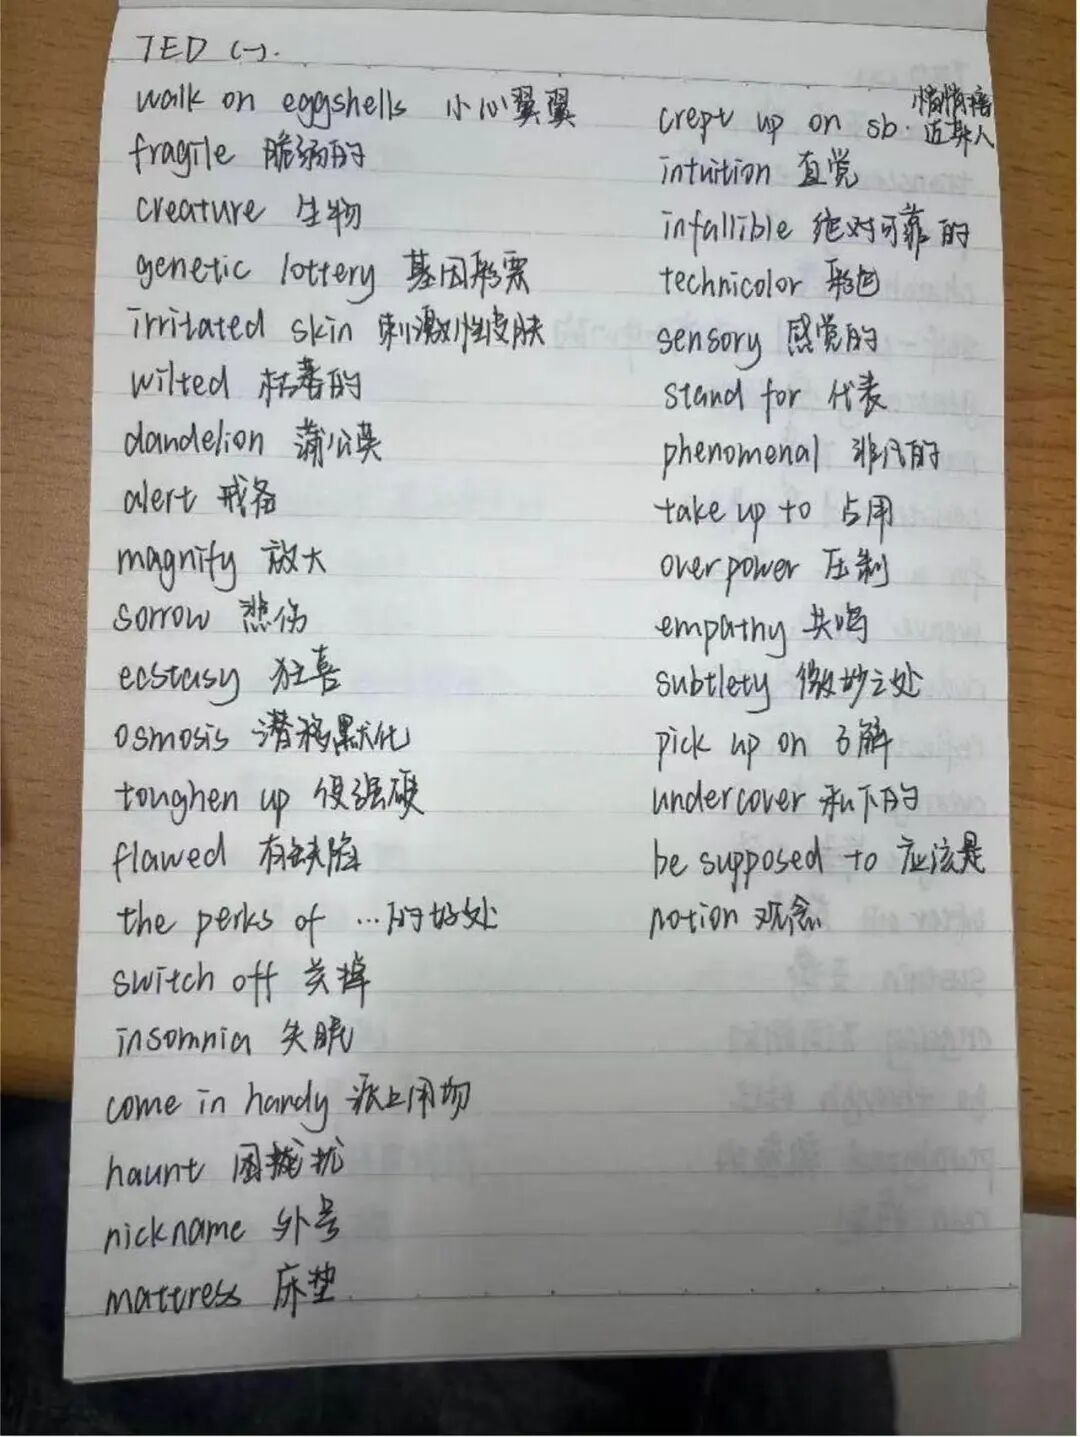 TED (一).
walk on eggshells 小心翼翼
fragile 脆弱的
creature 生物
genetic lottery 基因彩票
irritated skin 刺激性皮肤
wilted 枯萎的
dandelion 蒲公英
alert 戒备
magnify 放大
sorrow 悲伤
ecstasy 狂喜
osmosis 潜移默化
toughen up 使强硬
flawed 有缺陷
the perks of …的好处
switch off 关掉
insomnia 失眠
come in handy 派上用场
haunt 困扰
nickname 外号
mattress 床垫
crept up on sb. 悄悄接近某人
intuition 直觉
infallible 绝对可靠的
technicolor 彩色
sensory 感觉的
stand for 代表
phenomenal 非凡的
take up to 占用
overpower 压制
empathy 共鸣
subtlety 微妙之处
pick up on 了解
undercover 私下的
be supposed to 应该是
notion 观念